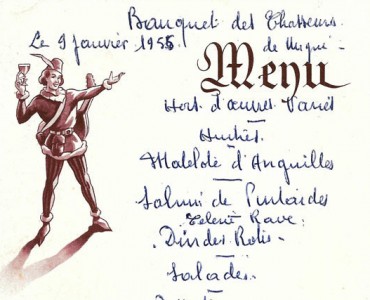 Banquet des Chasseurs
Le 9 Janvier 1955 de Migné -
Menu
Hors d'œuvres Variés
Huîtres
Matelote d'Anguilles
Salmi de Pintades
Céleri Rave
Dindes Roties
Salades